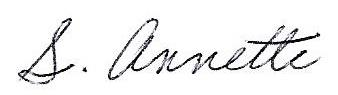 S. Annette